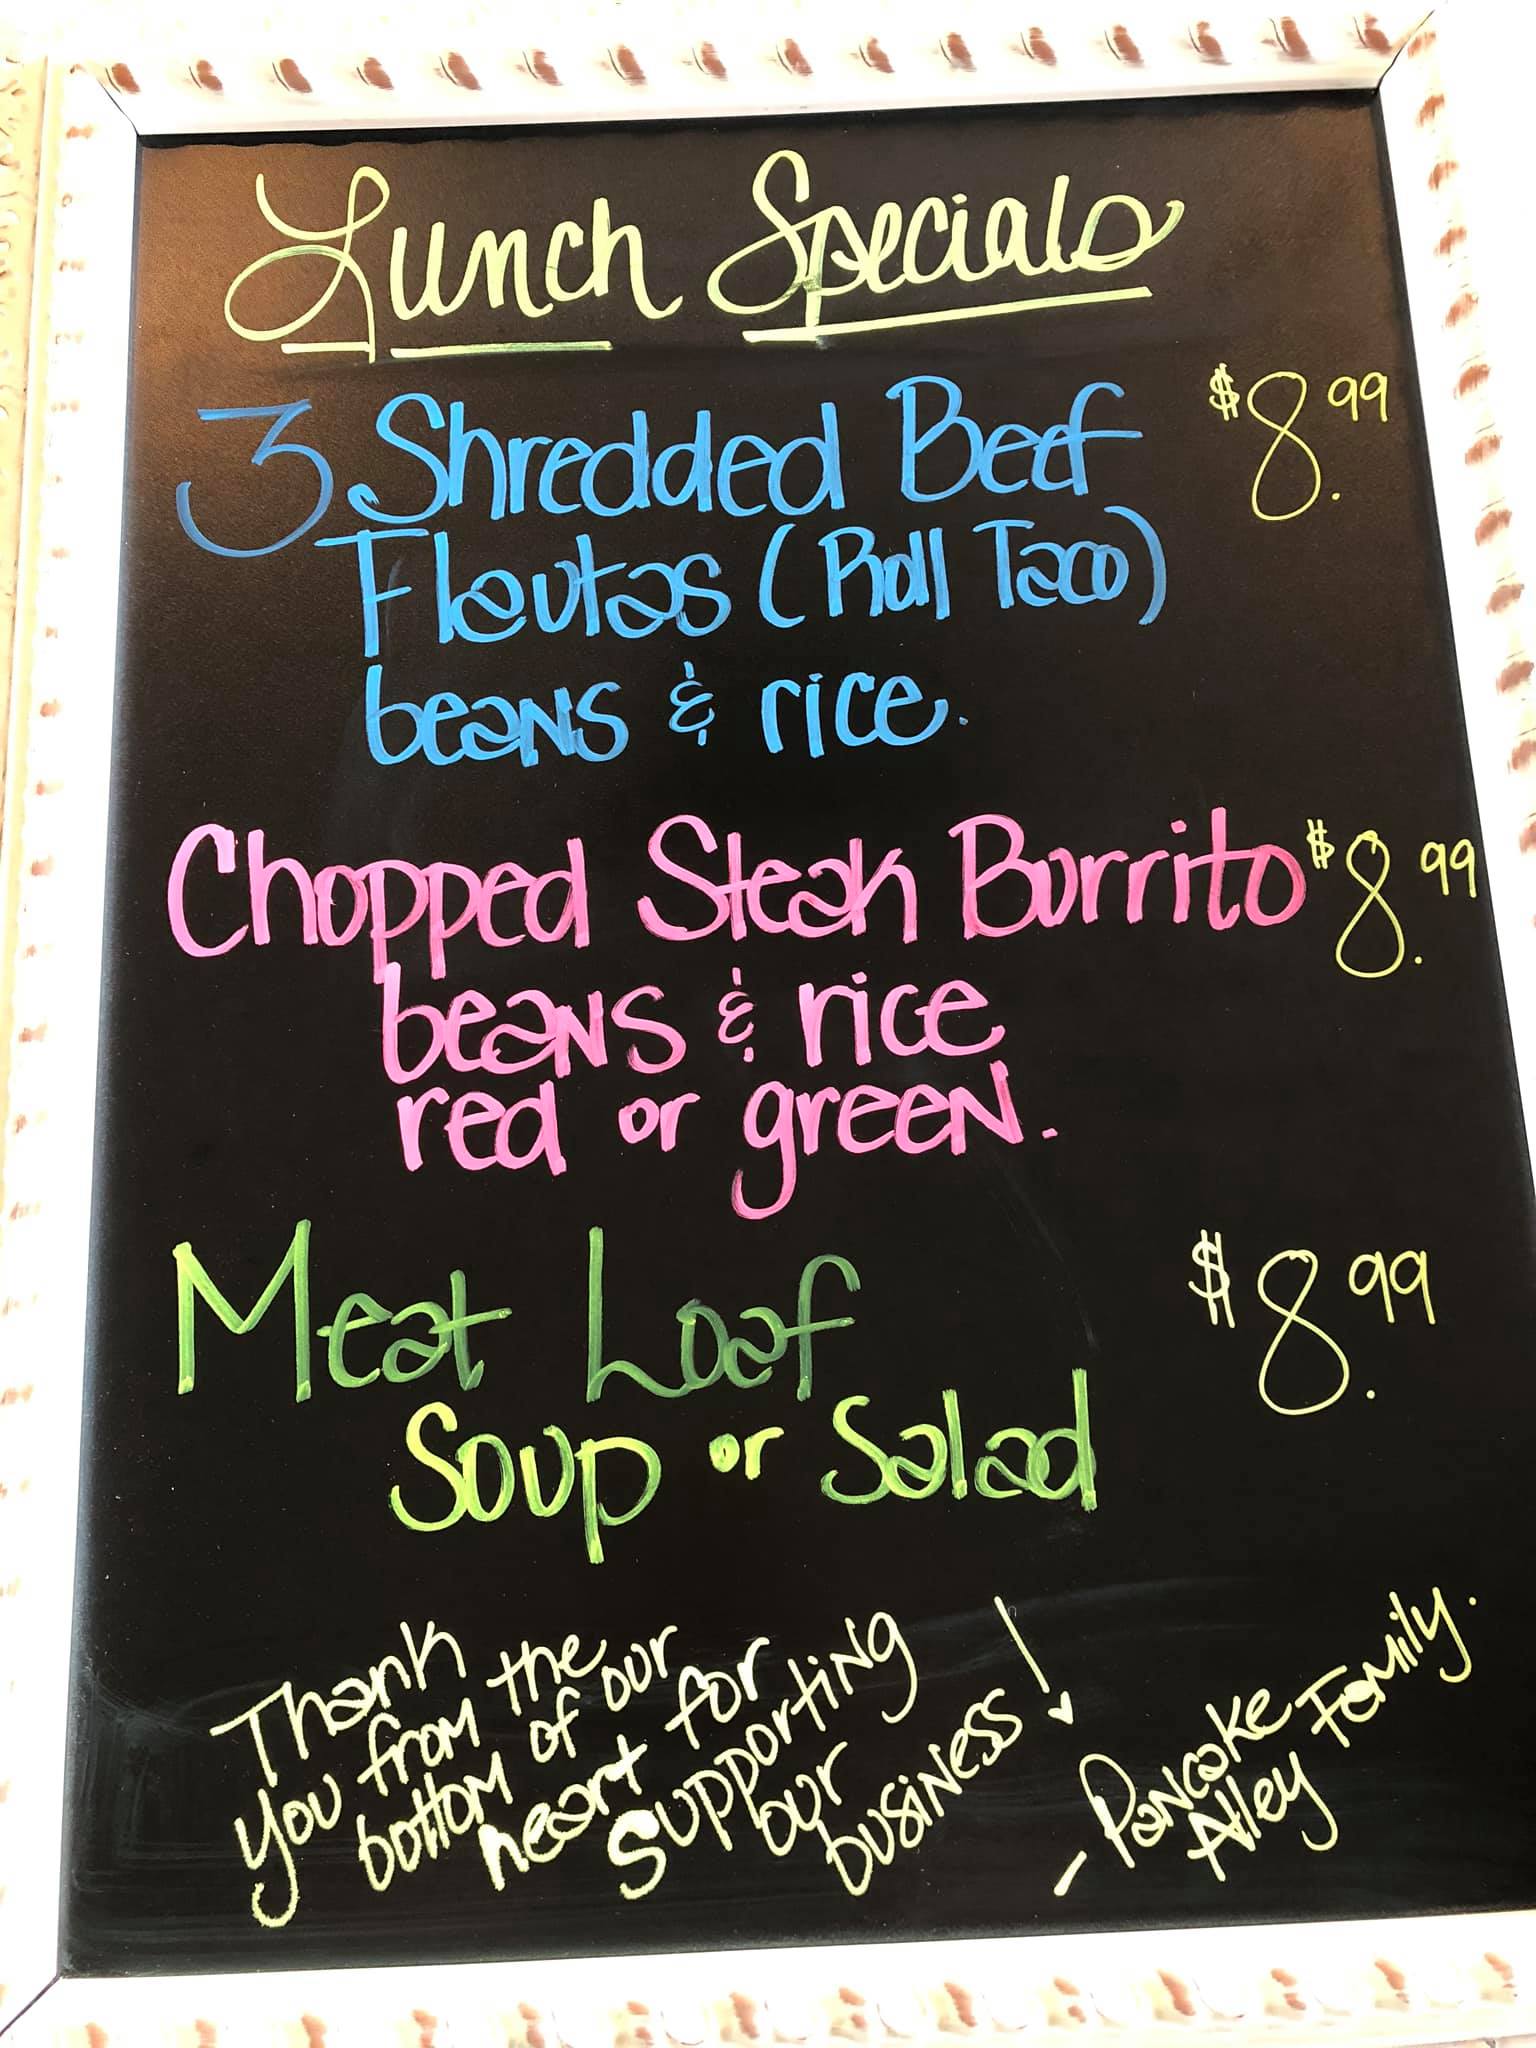 Lunch Specials
3 Shredded Beef $8.99
Flautas (Roll Taco)
beans & rice.
Chopped Steak Burrito $8.99
beans & rice
red or green.
Meat Loaf $8.99
Soup or Salad
Thank
you from the
bottom of our
heart for
supporting
our
business!
- Pancake
Alley Family.